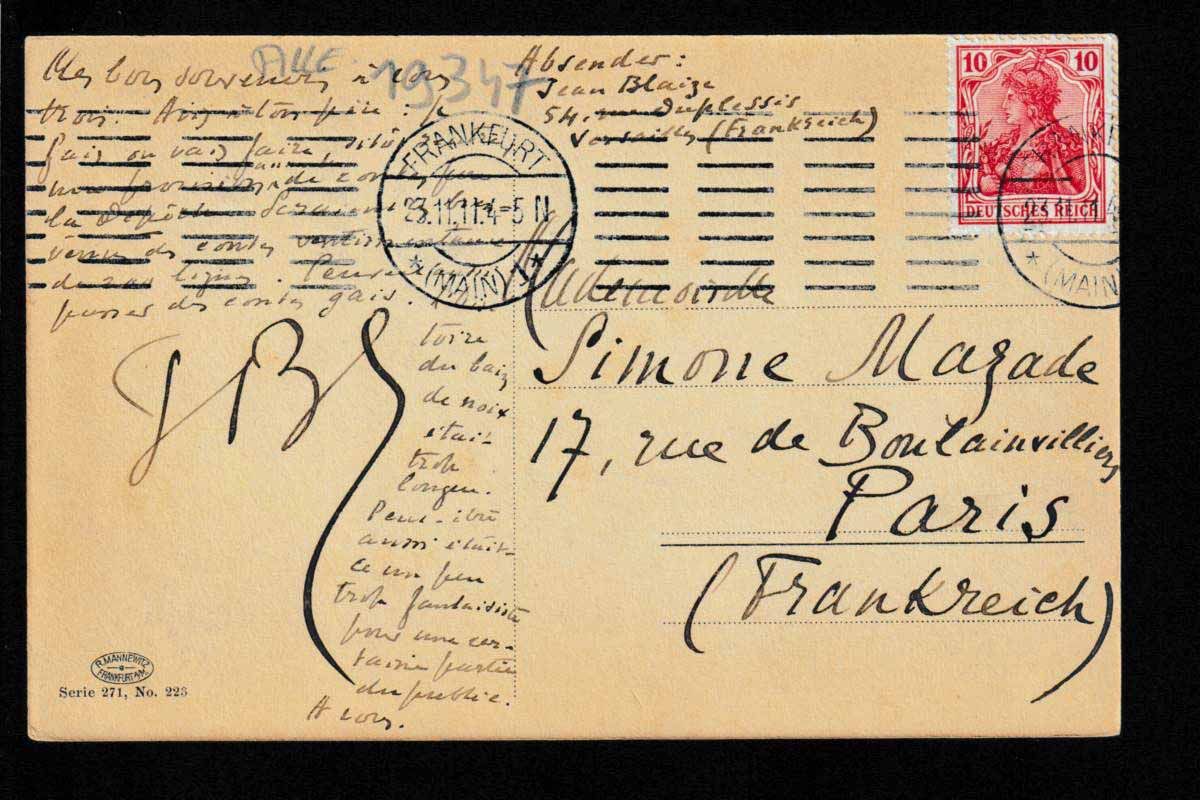 Mes bons souvenirs à vous
trois. à ton père : je
fais ou vais faire,
une provision de
la Dépêche
venu des contes
de lignes.
pusses des contes gais.
JB
toire
du baiz
de noix
était
trop
longue.
Peut-être
aussi était-
ce un peu
trop fantaisiste
pour une cer-
taine partie
du public.
A vous.
19347
Absender:
Jean Blaize
54, rue Duplessis
Versailles (Frankreich)
10 10
DEUTSCHES REICH
FRANKFURT
23.11.11.4-5 N
* (MAIN) 1 *
* (MAIN)
Mademoiselle
Simone Mazade
17, rue de Boulainvilliers
Paris
(Frankreich)
R. MANNEWITZ
FRANKFURT A/M.
Serie 271, No. 223